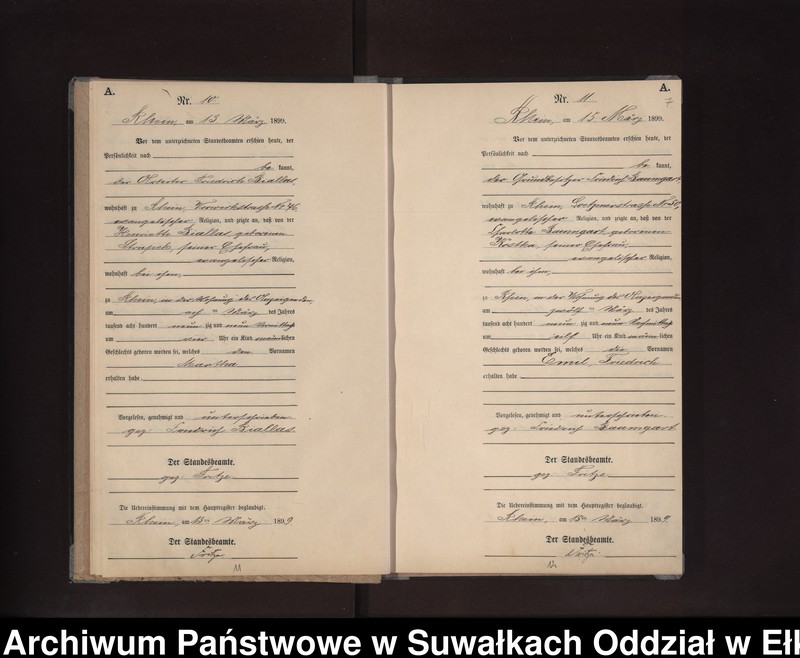 A.
Nr. 10
Rhein, am 13 März 1899.
Vor dem unterzeichneten Standesbeamten erschien heute, der
Persönlichkeit nach
be kannt,
der Friedrich Biallas,
wohnhaft zu Rhein, Vorwerkstrasse Nr 46,
evangelischer Religion, und zeigte an, daß von der
Henriette Biallas geborenen
seiner Ehefrau,
evangelischer Religion,
wohnhaft bei ihm,
zu Rhein, in der Wohnung des
am März des Jahres
tausend acht hundert neun zig und neun Vormittags
um vier Uhr ein Kind lichen
Geschlechts geboren worden sei, welches den Vornamen
Martha
erhalten habe.
Vorgelesen, genehmigt und unterschrieben
gez. Biallas.
Der Standesbeamte.
gez. Fritze
Die Uebereinstimmung mit dem Hauptregister beglaubigt.
Rhein, am 13ten März 1899
Der Standesbeamte.
Fritze
11
A.
7
Nr. 11
Rhein, am 15. März 1899.
Vor dem unterzeichneten Standesbeamten erschien heute, der
Persönlichkeit nach
be kannt,
der Grundbesitzer Friedrich Baumgart,
wohnhaft zu Rhein, Loetzenerstrasse
evangelischer Religion, und zeigte an, daß von der
Charlotte Baumgart geborenen
Kostka, seiner Ehefrau,
evangelischer Religion,
wohnhaft bei ihm,
zu Rhein, in der Wohnung des
am zwölf ten März des Jahres
tausend acht hundert neun zig und neun Nachmittags
um Uhr ein Kind lichen
Geschlechts geboren worden sei, welches die Vornamen
Emil Friedrich
erhalten habe
Vorgelesen, genehmigt und unterschrieben
gez. Friedrich Baumgart
Der Standesbeamte.
gez. Fritze
Die Uebereinstimmung mit dem Hauptregister beglaubigt.
Rhein, am 15ten März 1899.
Der Standesbeamte.
Fritze
Archiwum Państwowe w Suwałkach Oddział w Ełk